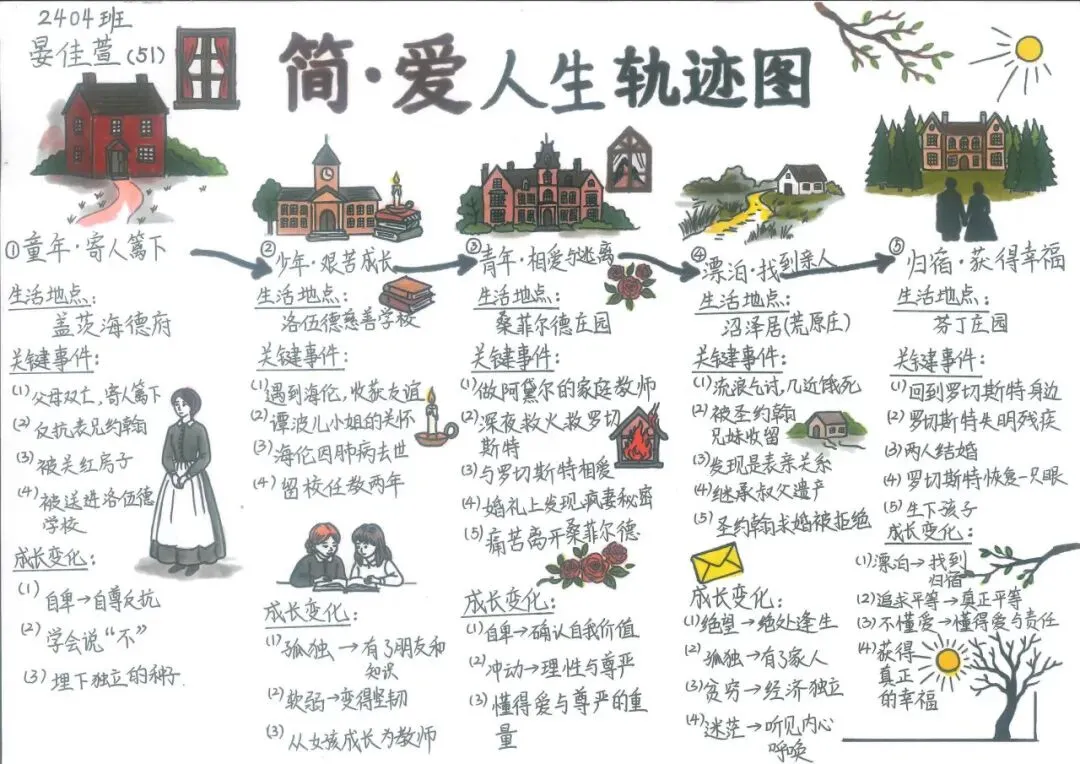 2404班
晏佳萱(51)
简·爱人生轨迹图
①童年·寄人篱下
生活地点：
盖茨海德府
关键事件：
(1)父母双亡，寄人篱下
(2)反抗表兄约翰
(3)被关红房子
(4)被送进洛伍德
学校
成长变化：
(1)自卑→自尊反抗
(2)学会说“不”
(3)埋下独立的种子.
②少年·艰苦成长
生活地点：
洛伍德慈善学校
关键事件：
(1)遇到海伦，收获友谊
(2)谭波儿小姐的关怀
(3)海伦因肺病去世
(4)留校任教两年
成长变化：
(1)孤独→有了朋友和
知识
(2)软弱→变得坚韧
(3)从女孩成长为教师
③青年·相爱与逃离
生活地点：
桑菲尔德庄园
关键事件：
(1)做阿黛尔的家庭教师
(2)深夜救火救罗切
斯特
(3)与罗切斯特相爱
(4)婚礼上发现疯妻秘密
(5)痛苦离开桑菲尔德
成长变化：
(1)自卑→确认自我价值
(2)冲动→理性与尊严
(3)懂得爱与尊严的重
量
④漂泊·找到亲人
生活地点：
沼泽居(荒原庄)
关键事件：
(1)流浪乞讨，几近饿死
(2)被圣约翰
兄妹收留
(3)发现是表亲关系
(4)继承叔父遗产
(5)圣约翰求婚被拒绝
成长变化：
(1)绝望→绝处逢生
(2)孤独→有了家人
(3)贫穷→经济独立
(4)迷茫→听见内心
呼唤
⑤归宿·获得幸福
生活地点：
芬丁庄园
关键事件：
(1)回到罗切斯特身边
(2)罗切斯特失明残疾
(3)两人结婚
(4)罗切斯特恢复一只眼
(5)生下孩子
成长变化：
(1)漂泊→找到
归宿
(2)追求平等→真正平等
(3)不懂爱→懂得爱与责任
(4)获得
真正
的幸福